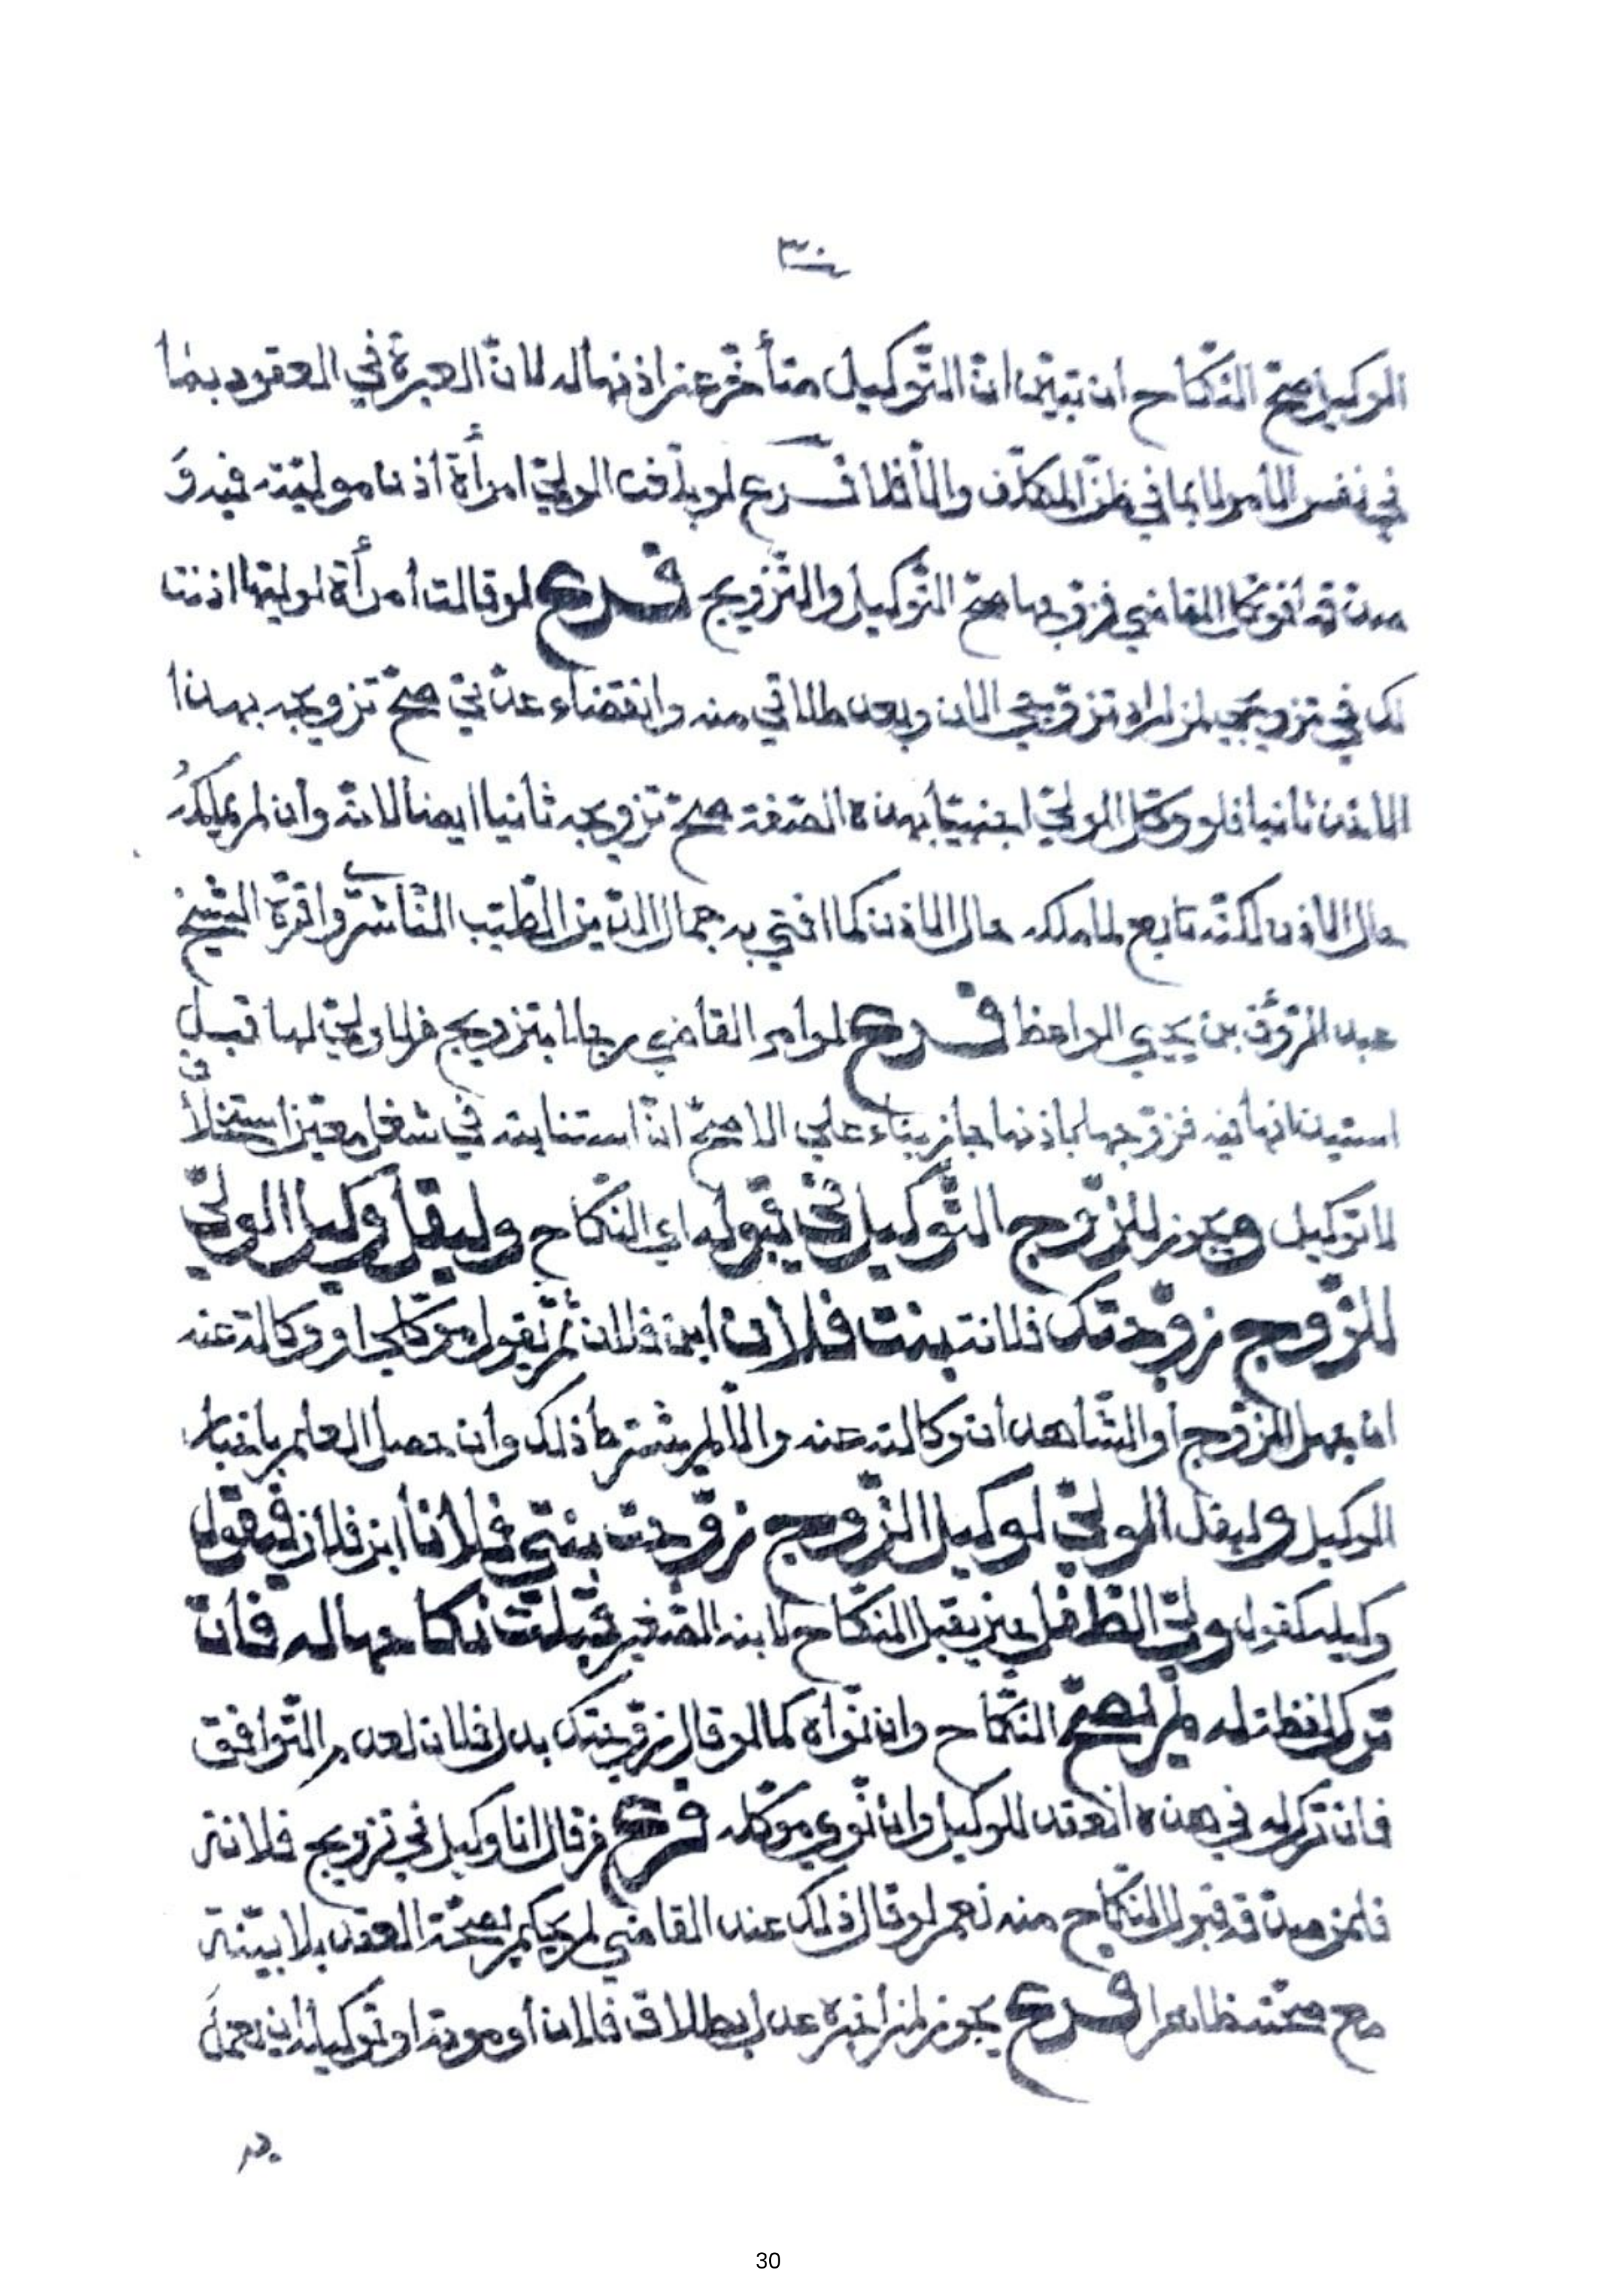 ٣٠
الوكيل صحّ النّكاح ان تبيّن انّ التّوكيل متأخّر عن اذنها له لانّ العبرة في العقود بما
في نفس الامر لا بما في ظنّ المكلّف والّا فلا فرع لو بلّغت الوليّ امرأة اذن موليّته فيه و
صدّقها فوكّل القاضي فزوّجها صحّ التّوكيل والتّزويج فرع لو قالت امرأة لوليّها اذنت
لك في تزويجي لمن اراد تزوّجي الان وبعد طلاقي منه وانقضاء عدّتي صحّ تزويجه بهذا
الاذن ثانيا فلو وكّل الوليّ اجنبيّا بهذه الصّفة صحّ تزويجه ثانيا ايضا لانّه وان لم يملكه
حال الاذن لكنّه تابع لما ملكه حال الاذن كما افتي به جمال الدّين الطّيّب النّاشريّ واقرّه الشّيخ
عبد الرّؤف بن يحيي الواعظ فرع لو امر القاضي رجلا بتزويج من لا وليّ لها قبل
استيذانها فيه فزوّجها باذنها جاز بناء علي الاصحّ انّ استنابته في شغل معيّن استخلاف
لا توكيل ويجوز للزّوج التّوكيل في قبوله اي النّكاح وليقل وكيل الوليّ
للزّوج زوّجتك فلانة بنت فلان ابن فلان ثمّ يقول موكّلي او وكالة عنه
ان جهل الزّوج او الشّاهدان وكالته عنه والّا لم يشترط ذلك وان حصل العلم باخبار
الوكيل وليقل الوليّ لوكيل الزّوج زوّجت بنتي فلانا ابن فلان فيقول
وكيله كقول وليّ الطّفل حين يقبل النّكاح لابنه الصّغير قبلت نكاحها له فان
ترك لفظة له لم يصحّ النّكاح وان نواه كما لو قال زوّجتك بدل فلان لعدم التّوافق
فان ترك له في هذه انعقد للوكيل وان نوي موكّله فرع من قال انا وكيل في تزويج فلانة
فلمن صدّقه قبول النّكاح منه نعم لو قال ذلك عند القاضي لم يحكم بصحّة العقد بلا بيّنة
مع صحّته ظاهرا فرع يجوز لمن اخبره عدل بطلاق فلان او موته او توكيله ان يعمل
به
30